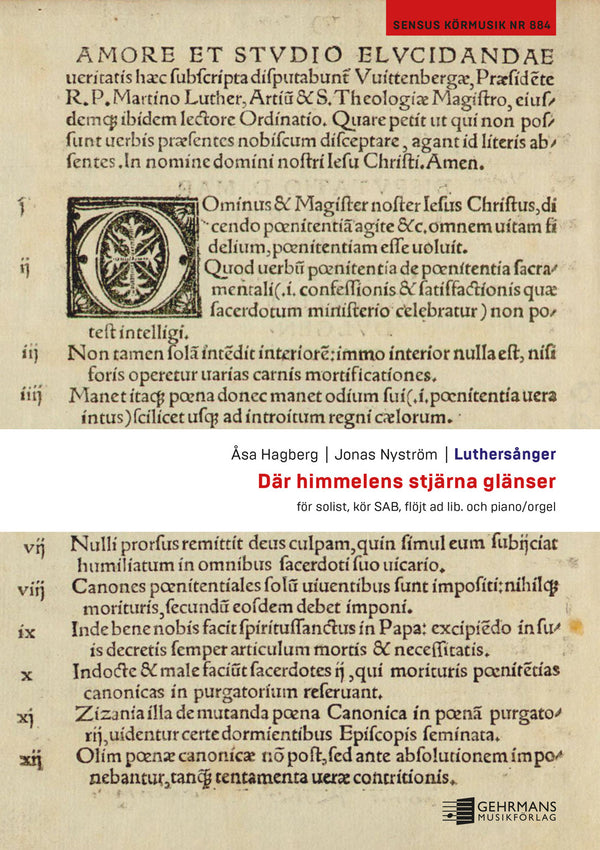 SENSUS KÖRMUSIK NR 884
AMORE ET STVDIO ELVCIDANDAE
ueritatis hæc subscripta disputabunt̄ Vuittenbergæ, Præsidēte
R. P. Martino Luther, Artiū & S. Theologiæ Magistro, eius/
demq; ibidem lectore Ordinatio. Quare petit ut qui non pos/
sunt uerbis præsentes nobiscum disceptare, agant id literis ab/
sentes. In nomine domini nostri Iesu Christi. Amen.
j Ominus & Magister noster Iesus Christus, di
cendo pœnitentiā agite &c. omnem uitam fi
delium, pœnitentiam esse uoluit.
ij Quod uerbū pœnitentia de pœnitentia sacra/
mentali (.i. confessionis & satisfactionis quæ
sacerdotum ministerio celebratur) non po/
test intelligi.
iij Non tamen solā intēdit interiorē: immo interior nulla est, nisi
foris operetur uarias carnis mortificationes.
iiij Manet itaq; pœna donec manet odium sui (.i. pœnitentia uera
intus) scilicet usq; ad introitum regni cælorum.
Åsa Hagberg | Jonas Nyström | Luthersånger
Där himmelens stjärna glänser
för solist, kör SAB, flöjt ad lib. och piano/orgel
vij Nulli prorsus remittit deus culpam, quin simul eum subijciat
humiliatum in omnibus sacerdoti suo uicario.
viij Canones pœnitentiales solū uiuentibus sunt impositi: nihilq;
morituris, secundū eosdem debet imponi.
ix Inde bene nobis facit spiritussanctus in Papa: excipiēdo in su/
is decretis semper articulum mortis & necessitatis.
x Indocte & male faciūt sacerdotes ij, qui morituris pœnitētias
canonicas in purgatorium reseruant.
xj Zizania illa de mutanda pœna Canonica in pœnā purgato/
rij, uidentur certe dormientibus Episcopis seminata.
xij Olim pœnæ canonicæ nō post, sed ante absolutionem impo/
nebantur, tanq̄ tentamenta ueræ contritionis.
GEHRMANS
MUSIKFÖRLAG